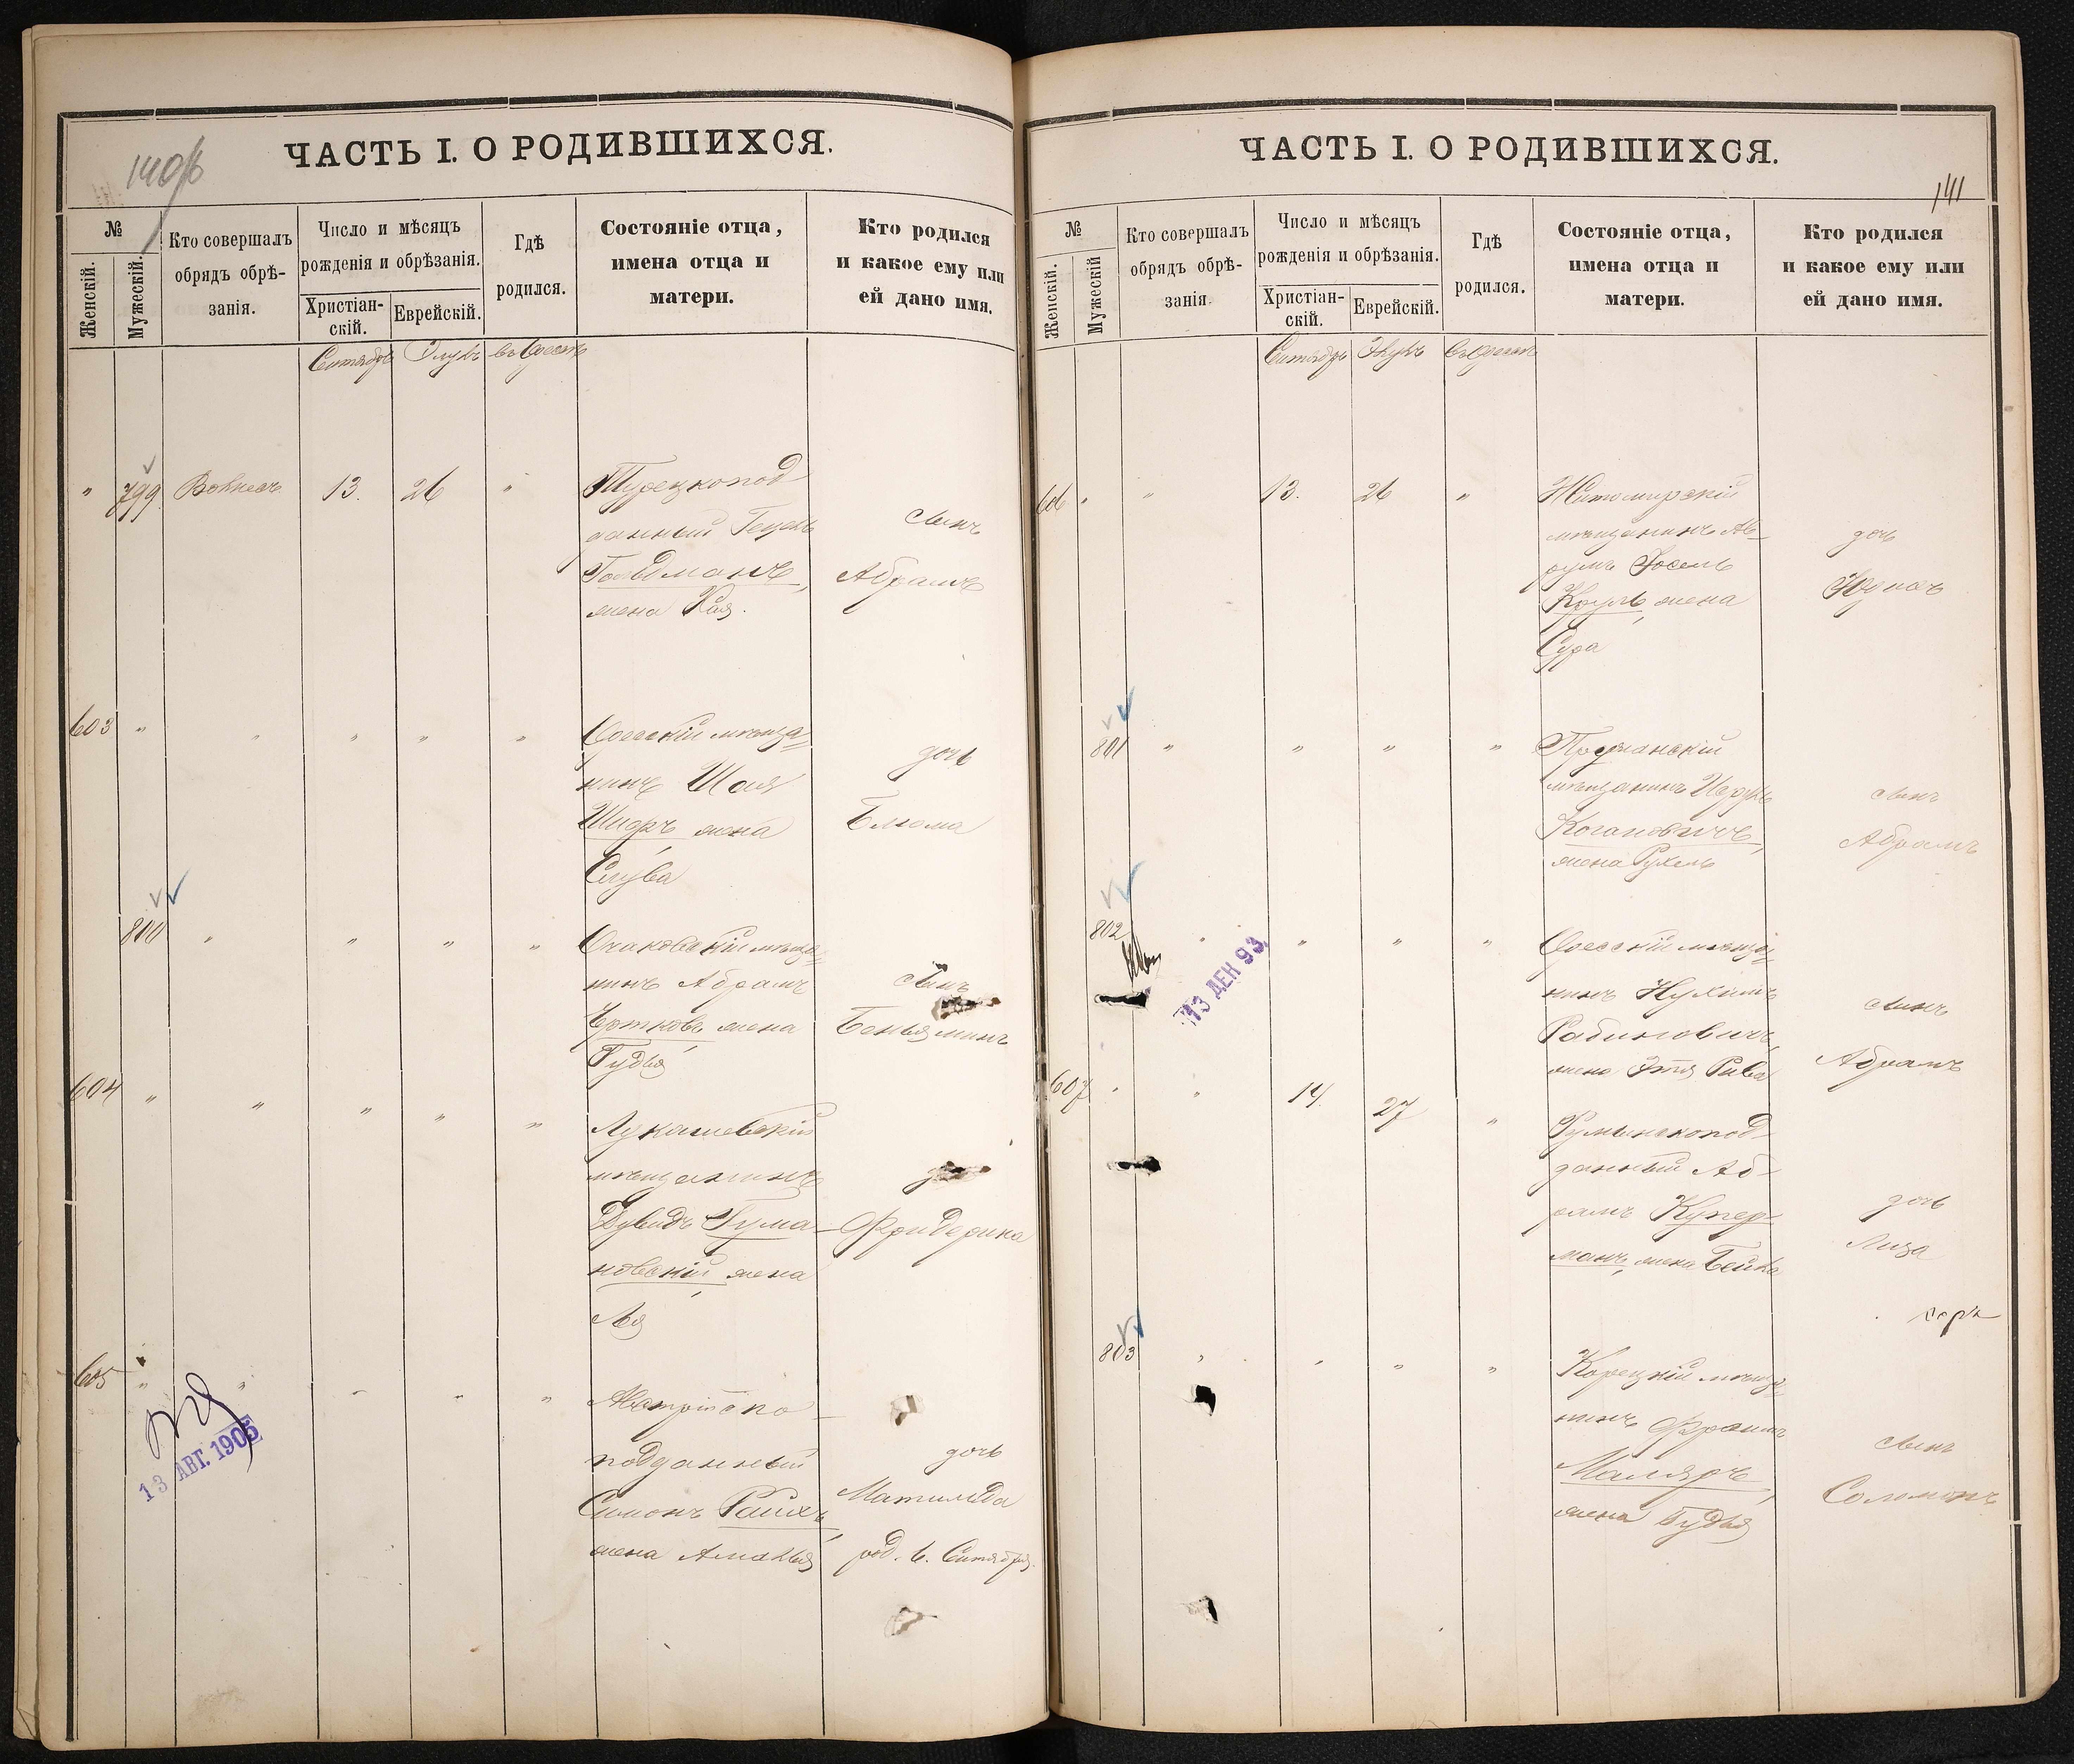 140
ЧАСТЬ I. О РОДИВШИХСЯ.
№
Женскій.
Мужескій.
Кто совершалъ
обрядъ обрѣ-
занія.
Число и мѣсяцъ
рожденія и обрѣзанія.
Христіан-
скій.
Еврейскій.
Гдѣ
родился.
Состояніе отца,
имена отца и
матери.
Кто родился
и какое ему или
ей дано имя.
Сентябрь Элулъ въ Одессѣ
" 799 13. 26 "
Турецкопод
данный Гецель
Гольдманъ,
жена Хая.
Сынъ
Абрамъ
603 " " " " "
Одесскій мѣща=
нинъ Шая
жена
Слува
дочь
Блюма
800 " " " "
Очаковскій мѣща=
нинъ Абрамъ
жена
Гудья
Сынъ
Беньяминъ
604 " " " " "
мѣщанинъ
Дувидъ Гума-
новскій, жена
Лея
Фридерика
605 " " " " "
Австрійско-
подданный
Симонъ Райхъ,
жена Амалья
дочь
Матильда
род. 6. Сентября.
13 АВГ. 1905
ЧАСТЬ I. О РОДИВШИХСЯ.
141
№
Женскій.
Мужескій
Кто совершалъ
обрядъ обрѣ-
занія.
Число и мѣсяцъ
рожденія и обрѣзанія.
Христіан-
скій.
Еврейскій.
Гдѣ
родился.
Состояніе отца,
имена отца и
матери.
Кто родился
и какое ему или
ей дано имя.
Сентябрь Элулъ въ Одессѣ
606 " " 13. 26 "
Житомирскій
мѣщанинъ Ав-
румъ Іосель
жена
Сура
дочь
801 " " " "
мѣщанинъ
Когановичъ,
жена Рухель
сынъ
Абрамъ
802 " " " "
Одесскій мѣща=
нинъ Нухимъ
Рабиновичъ,
жена Этя Рива
сынъ
Абрамъ
13 ДЕН 93
607 " " 14. 27 "
Румынскопод-
данный Аб-
рамъ Купер-
манъ, жена Бейла
дочь
Лиза
803 " " " "
Корецкій мѣща-
нинъ Фроимъ
Маляръ,
жена Гудья
сынъ
Соломонъ